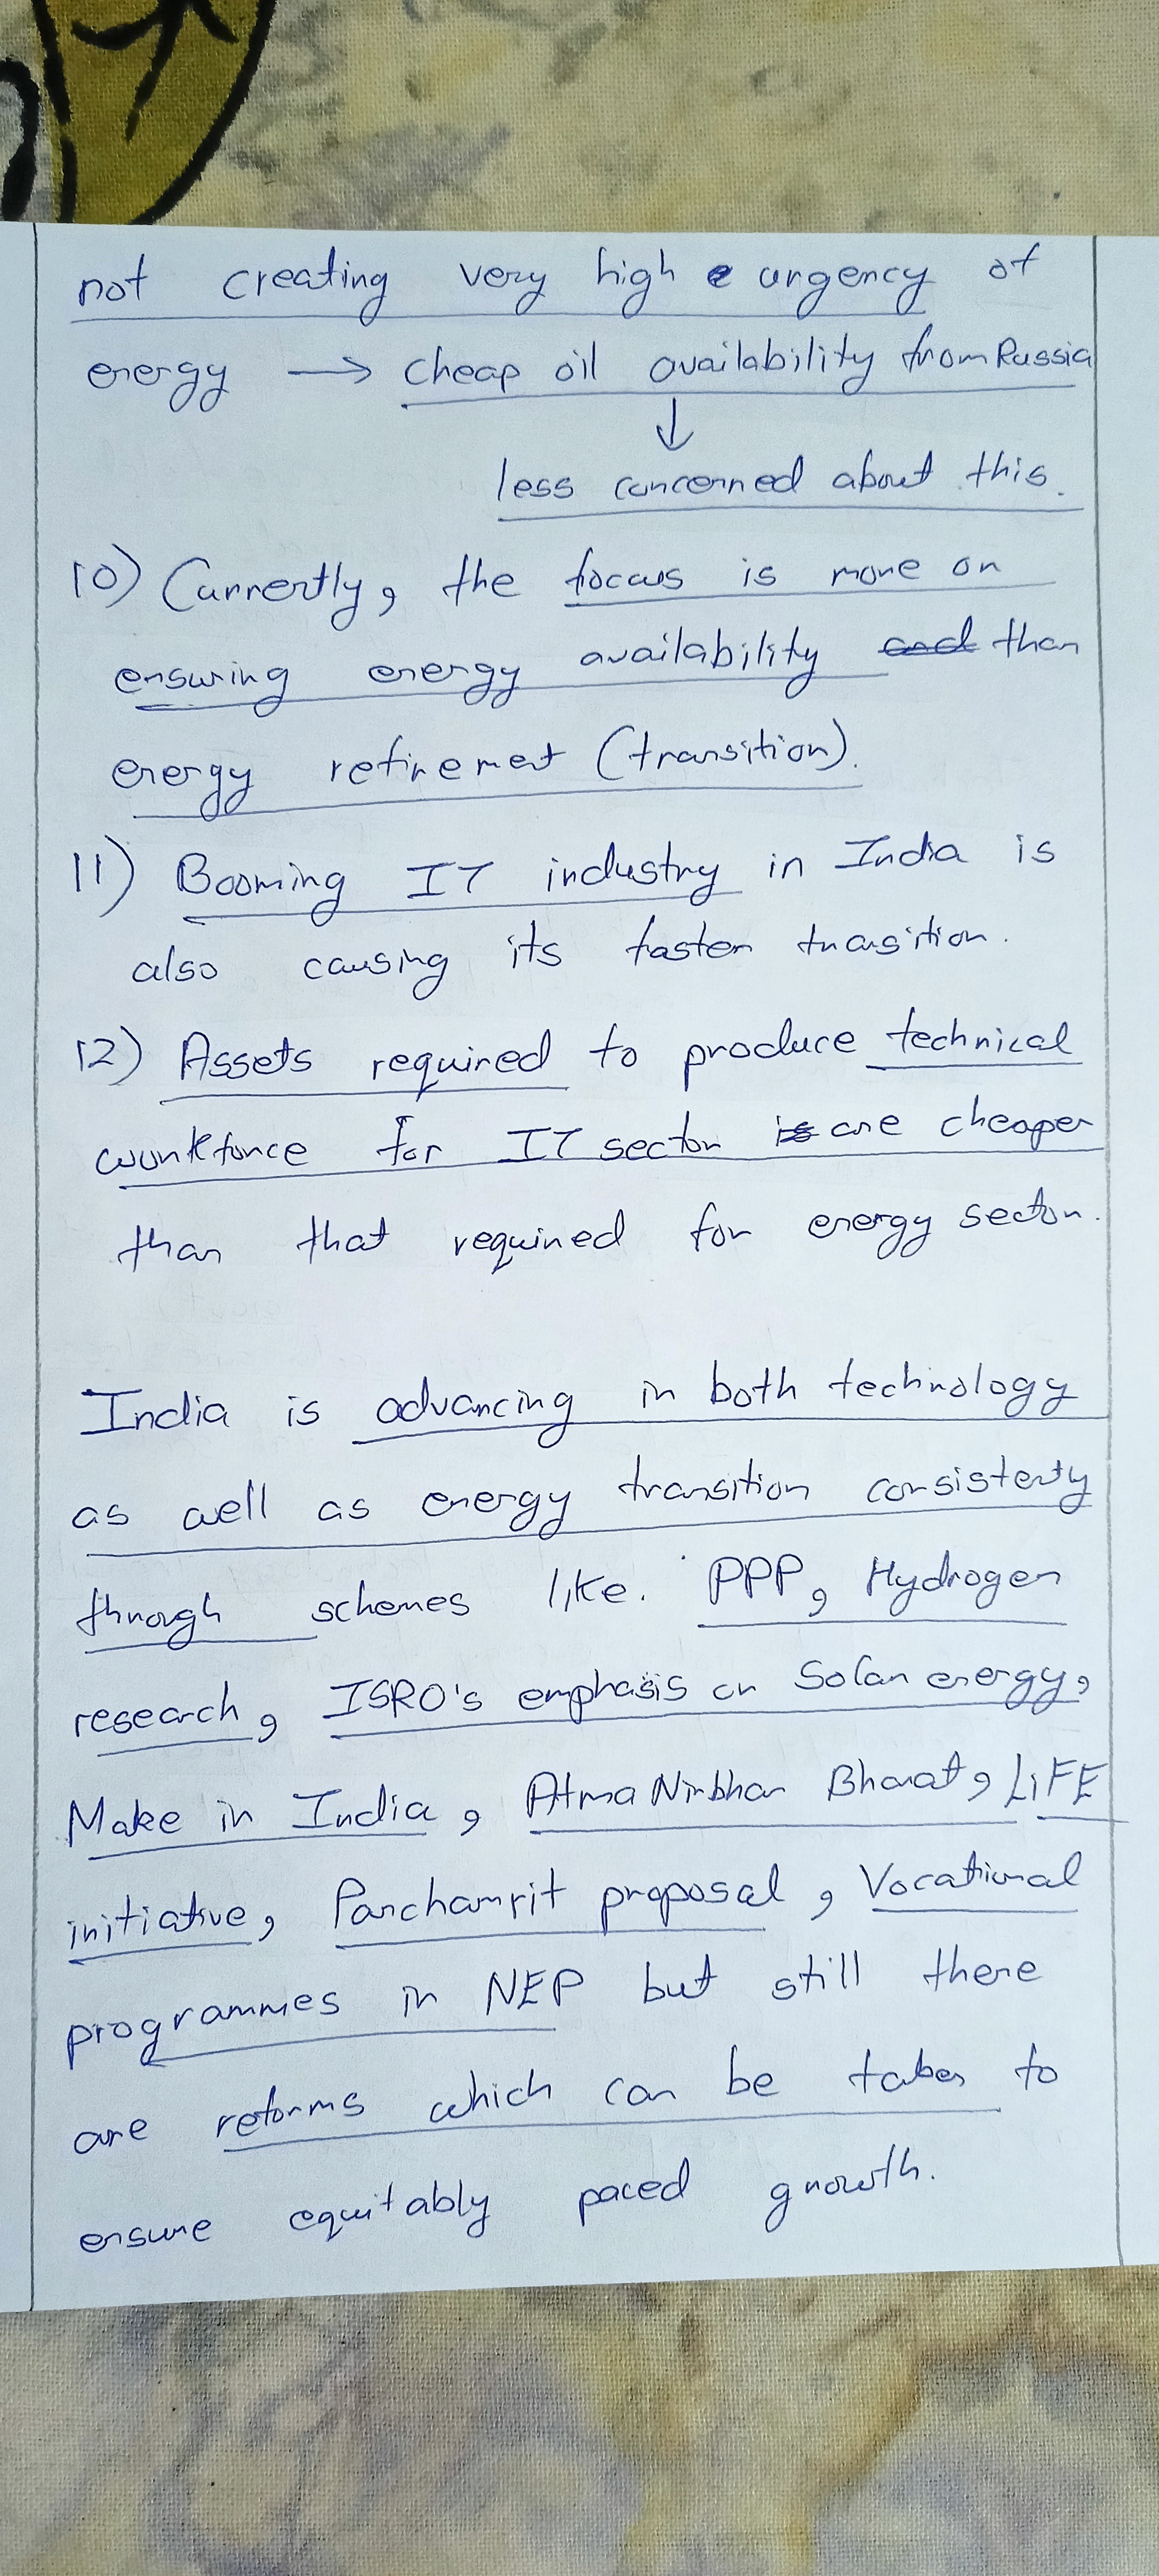 not creating very high urgency of
energy → cheap oil availability from Russia
↓
less concerned about this.
10) Currently, the focus is more on
ensuring energy availability and than
energy refinement (transition).
11) Booming IT industry in India is
also causing its faster trasition.
12) Assets required to produce technical
workforce for IT sector is are cheaper
than that required for energy sector.
India is advancing in both technology
as well as energy transition consistently
through schemes like. PPP, Hydrogen
research, ISRO's emphasis on Solar energy,
Make in India, Atma Nirbhar Bharat, LiFE
initiative, Panchamrit proposal, Vocational
programmes in NEP but still there
are reforms which can be taken to
ensure equitably paced growth.